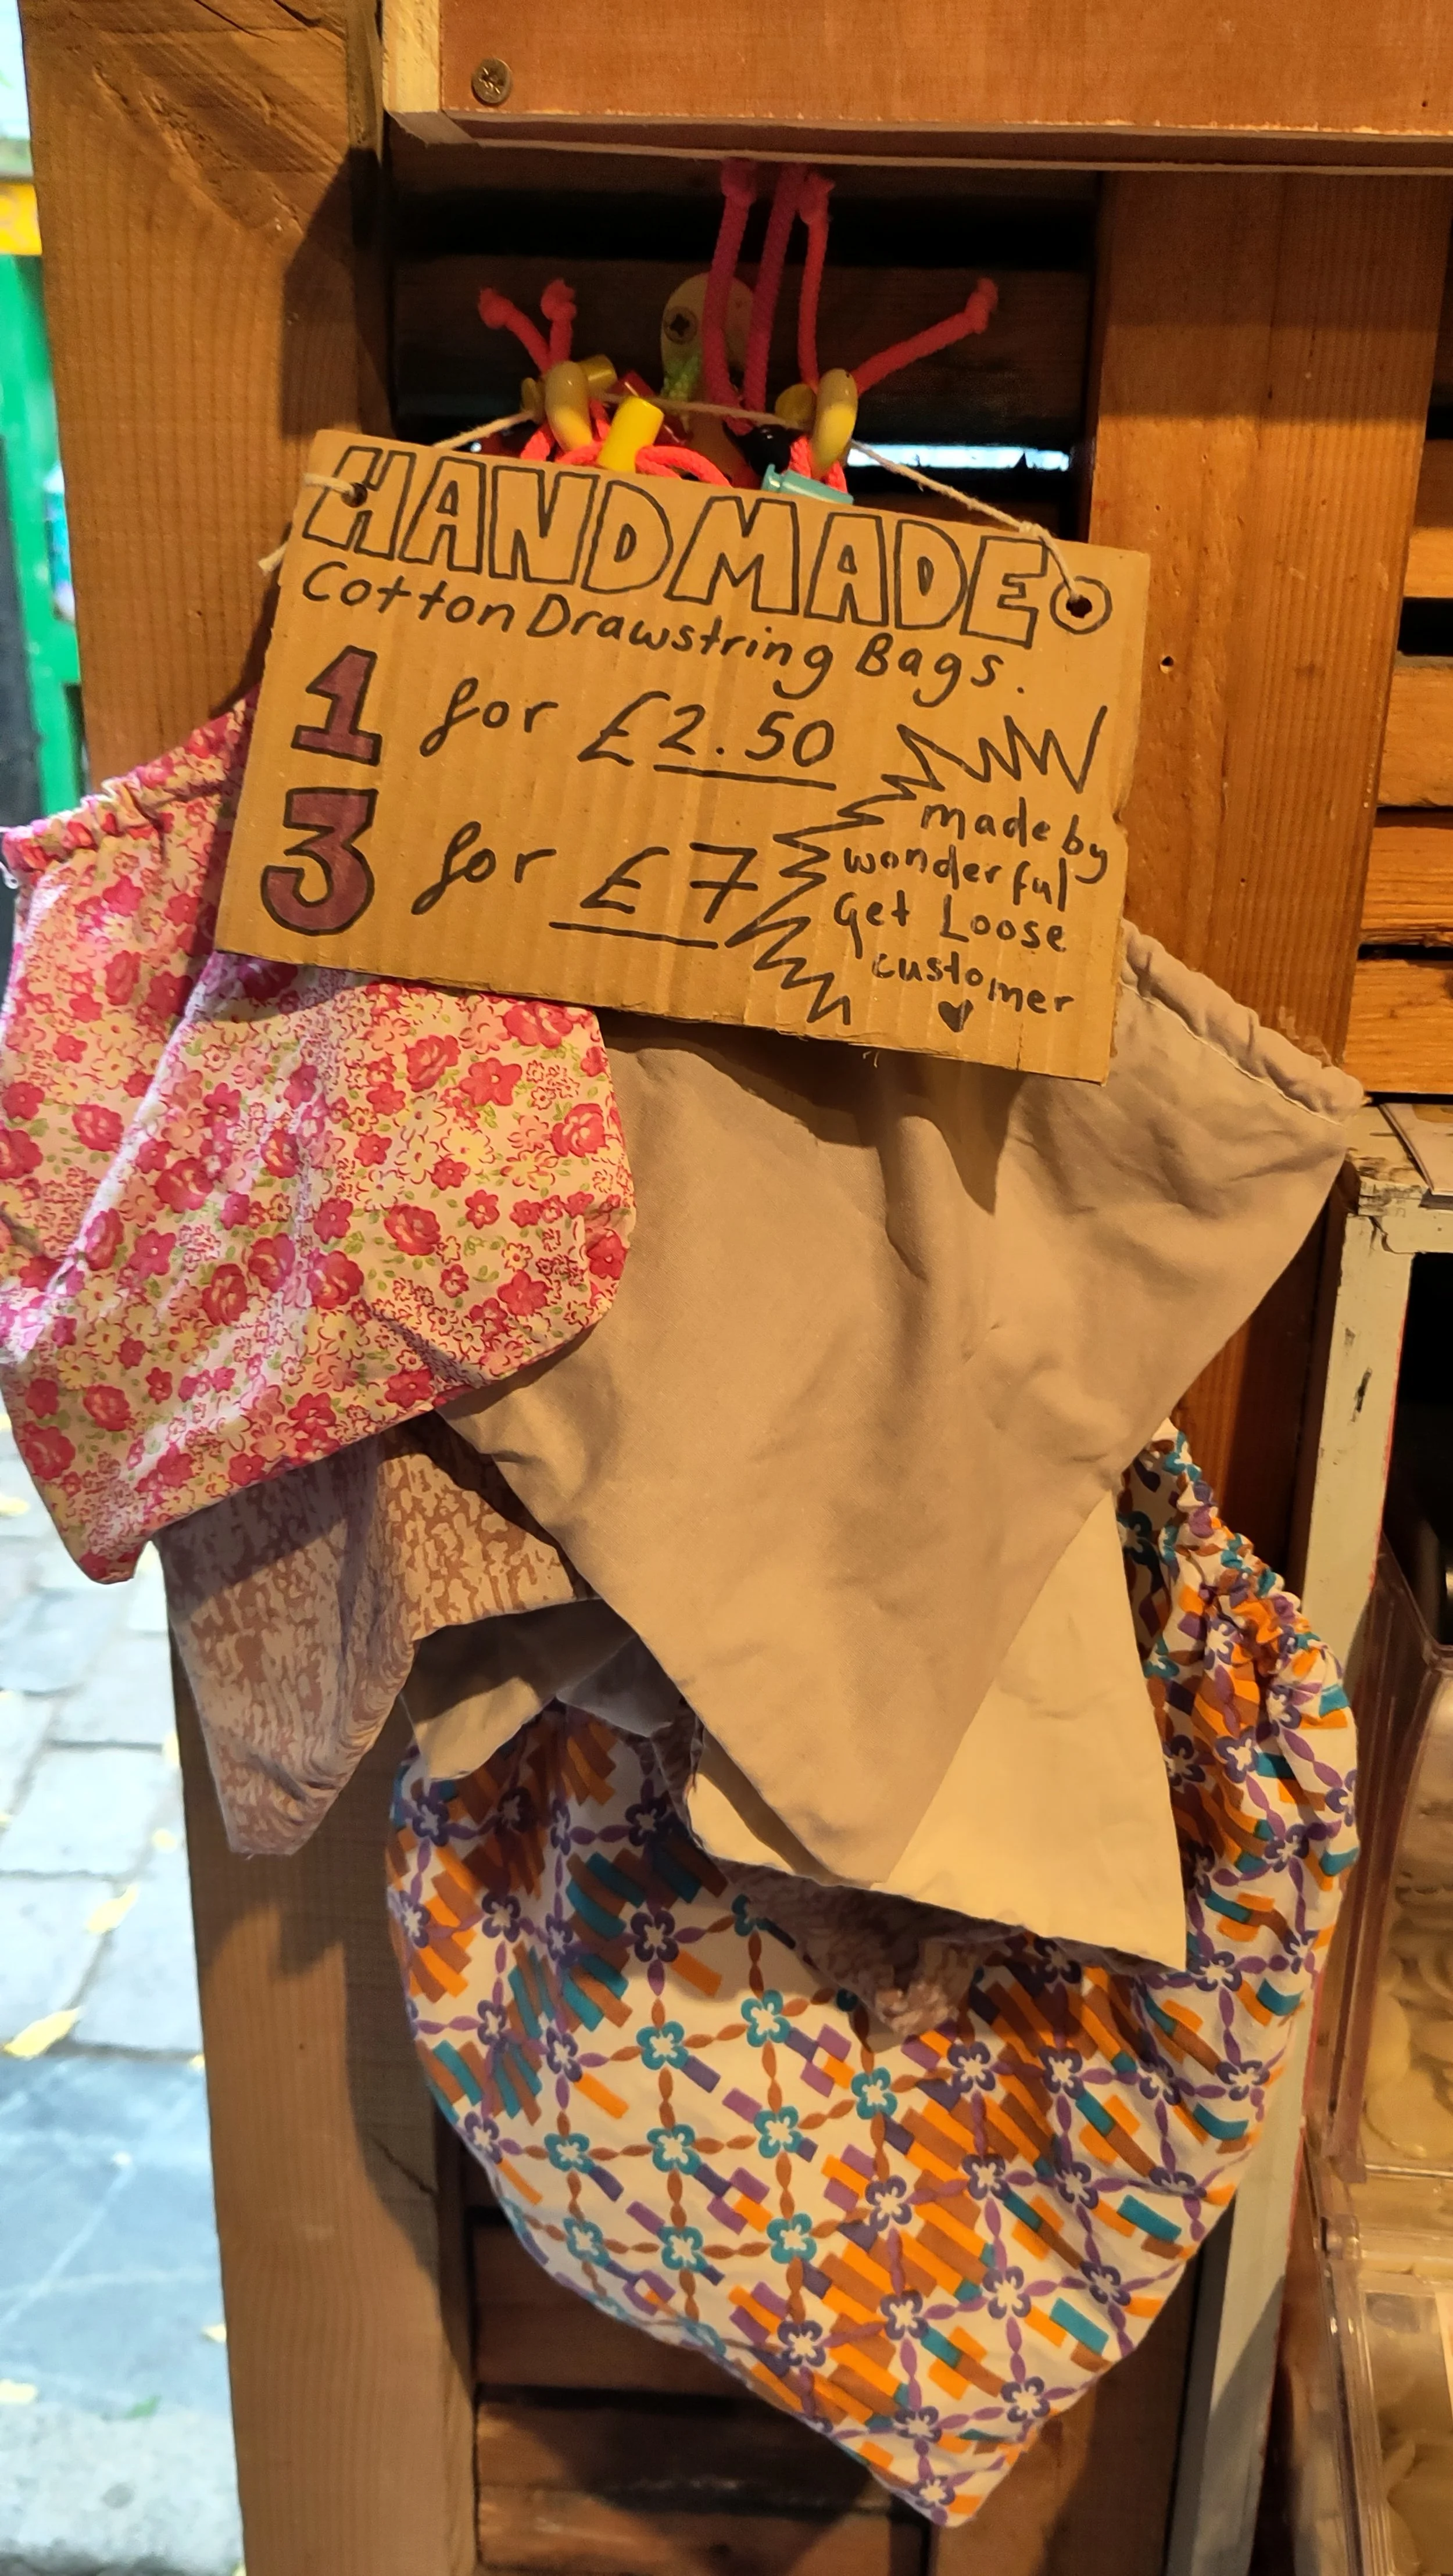 HANDMADE
Cotton Drawstring Bags.
1 for £2.50
3 for £7
made by
wonderful
Get Loose
customer